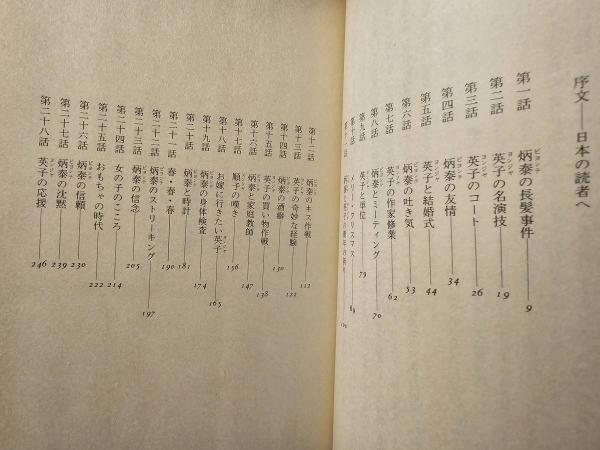 序文――日本の読者へ
第一話 炳泰の長髪事件――9
第二話 英子の名演技――19
第三話 英子のコート――26
第四話 炳泰の友情――34
第五話 英子と結婚式――44
第六話 炳泰の吐き気――53
第七話 英子の作家修業――62
第八話 炳泰とミーティング――70
第九話 英子と単位――79
第十話 メリー・クリスマス――89
第十二話 炳泰のキス作戦――112
第十三話 英子の奇妙な経験――122
第十四話 炳泰の酒癖――130
第十五話 英子の買い物作戦――138
第十六話 炳泰と家庭教師――147
第十七話 順子の嘆き――156
第十八話 お嫁に行きたい英子――165
第十九話 炳泰の身体検査――174
第二十話 炳泰と時計――181
第二十一話 春・春・春――190
第二十二話 炳泰のストリーキング――197
第二十三話 炳泰の信念――205
第二十四話 女の子のこころ――214
第二十五話 おもちゃの時代――222
第二十六話 炳泰の信頼――230
第二十七話 炳泰の沈黙――239
第二十八話 英子の応援――246